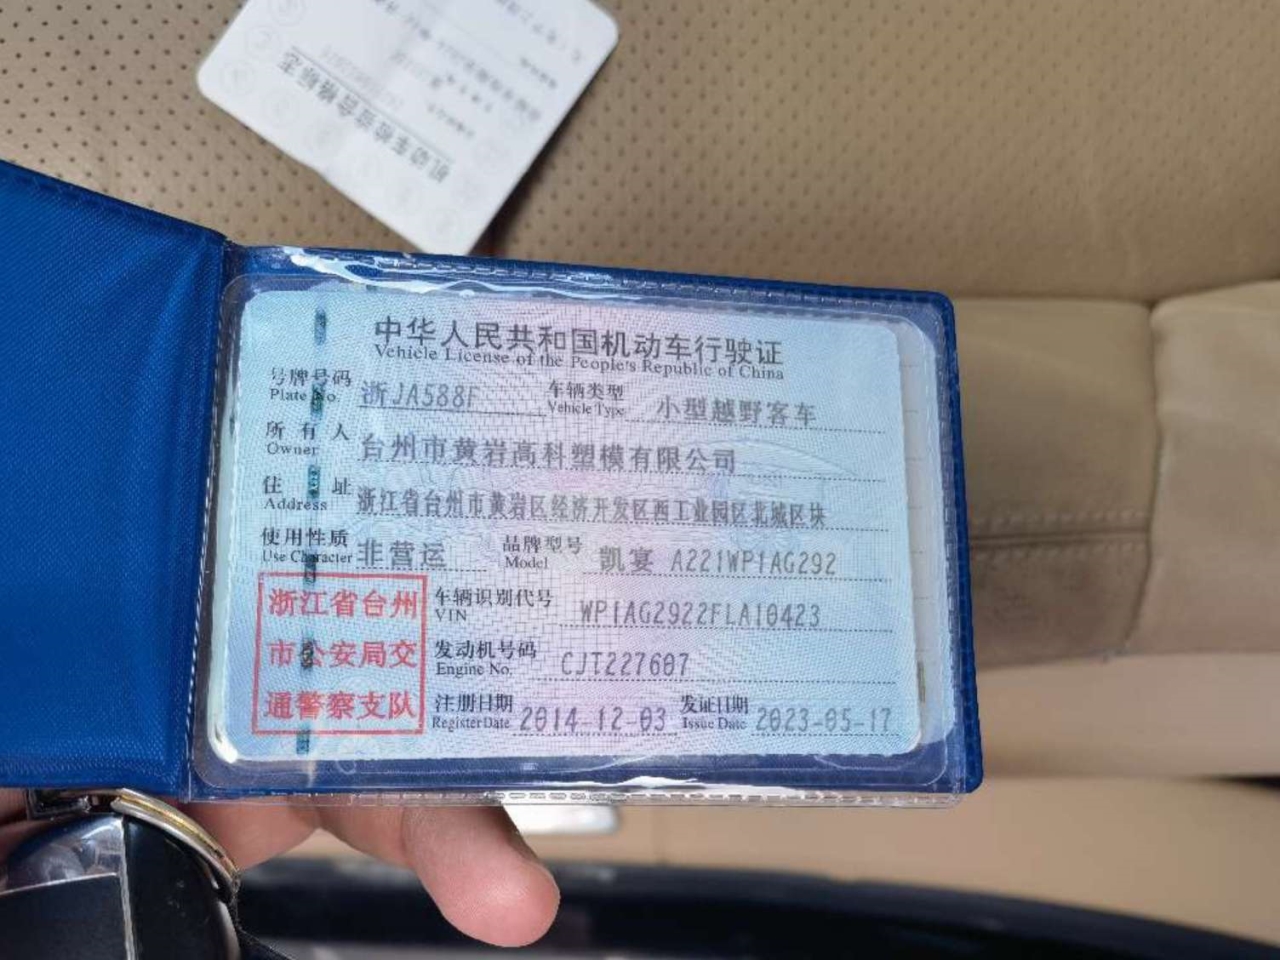 机动车检验合格标志
中华人民共和国机动车行驶证
Vehicle License of the People's Republic of China
号牌号码 浙JA588F 车辆类型 小型越野客车
Plate No. Vehicle Type
所有人 台州市黄岩高科塑模有限公司
Owner
住址 浙江省台州市黄岩区经济开发区西工业园区北城区块
Address
使用性质 非营运 品牌型号 凯宴 A221WP1AG292
Use Character Model
浙江省台州
市公安局交
通警察支队
车辆识别代号 WP1AG2922FLA10423
VIN
发动机号码 CJT227607
Engine No.
注册日期 2014-12-03 发证日期 2023-05-17
Register Date Issue Date